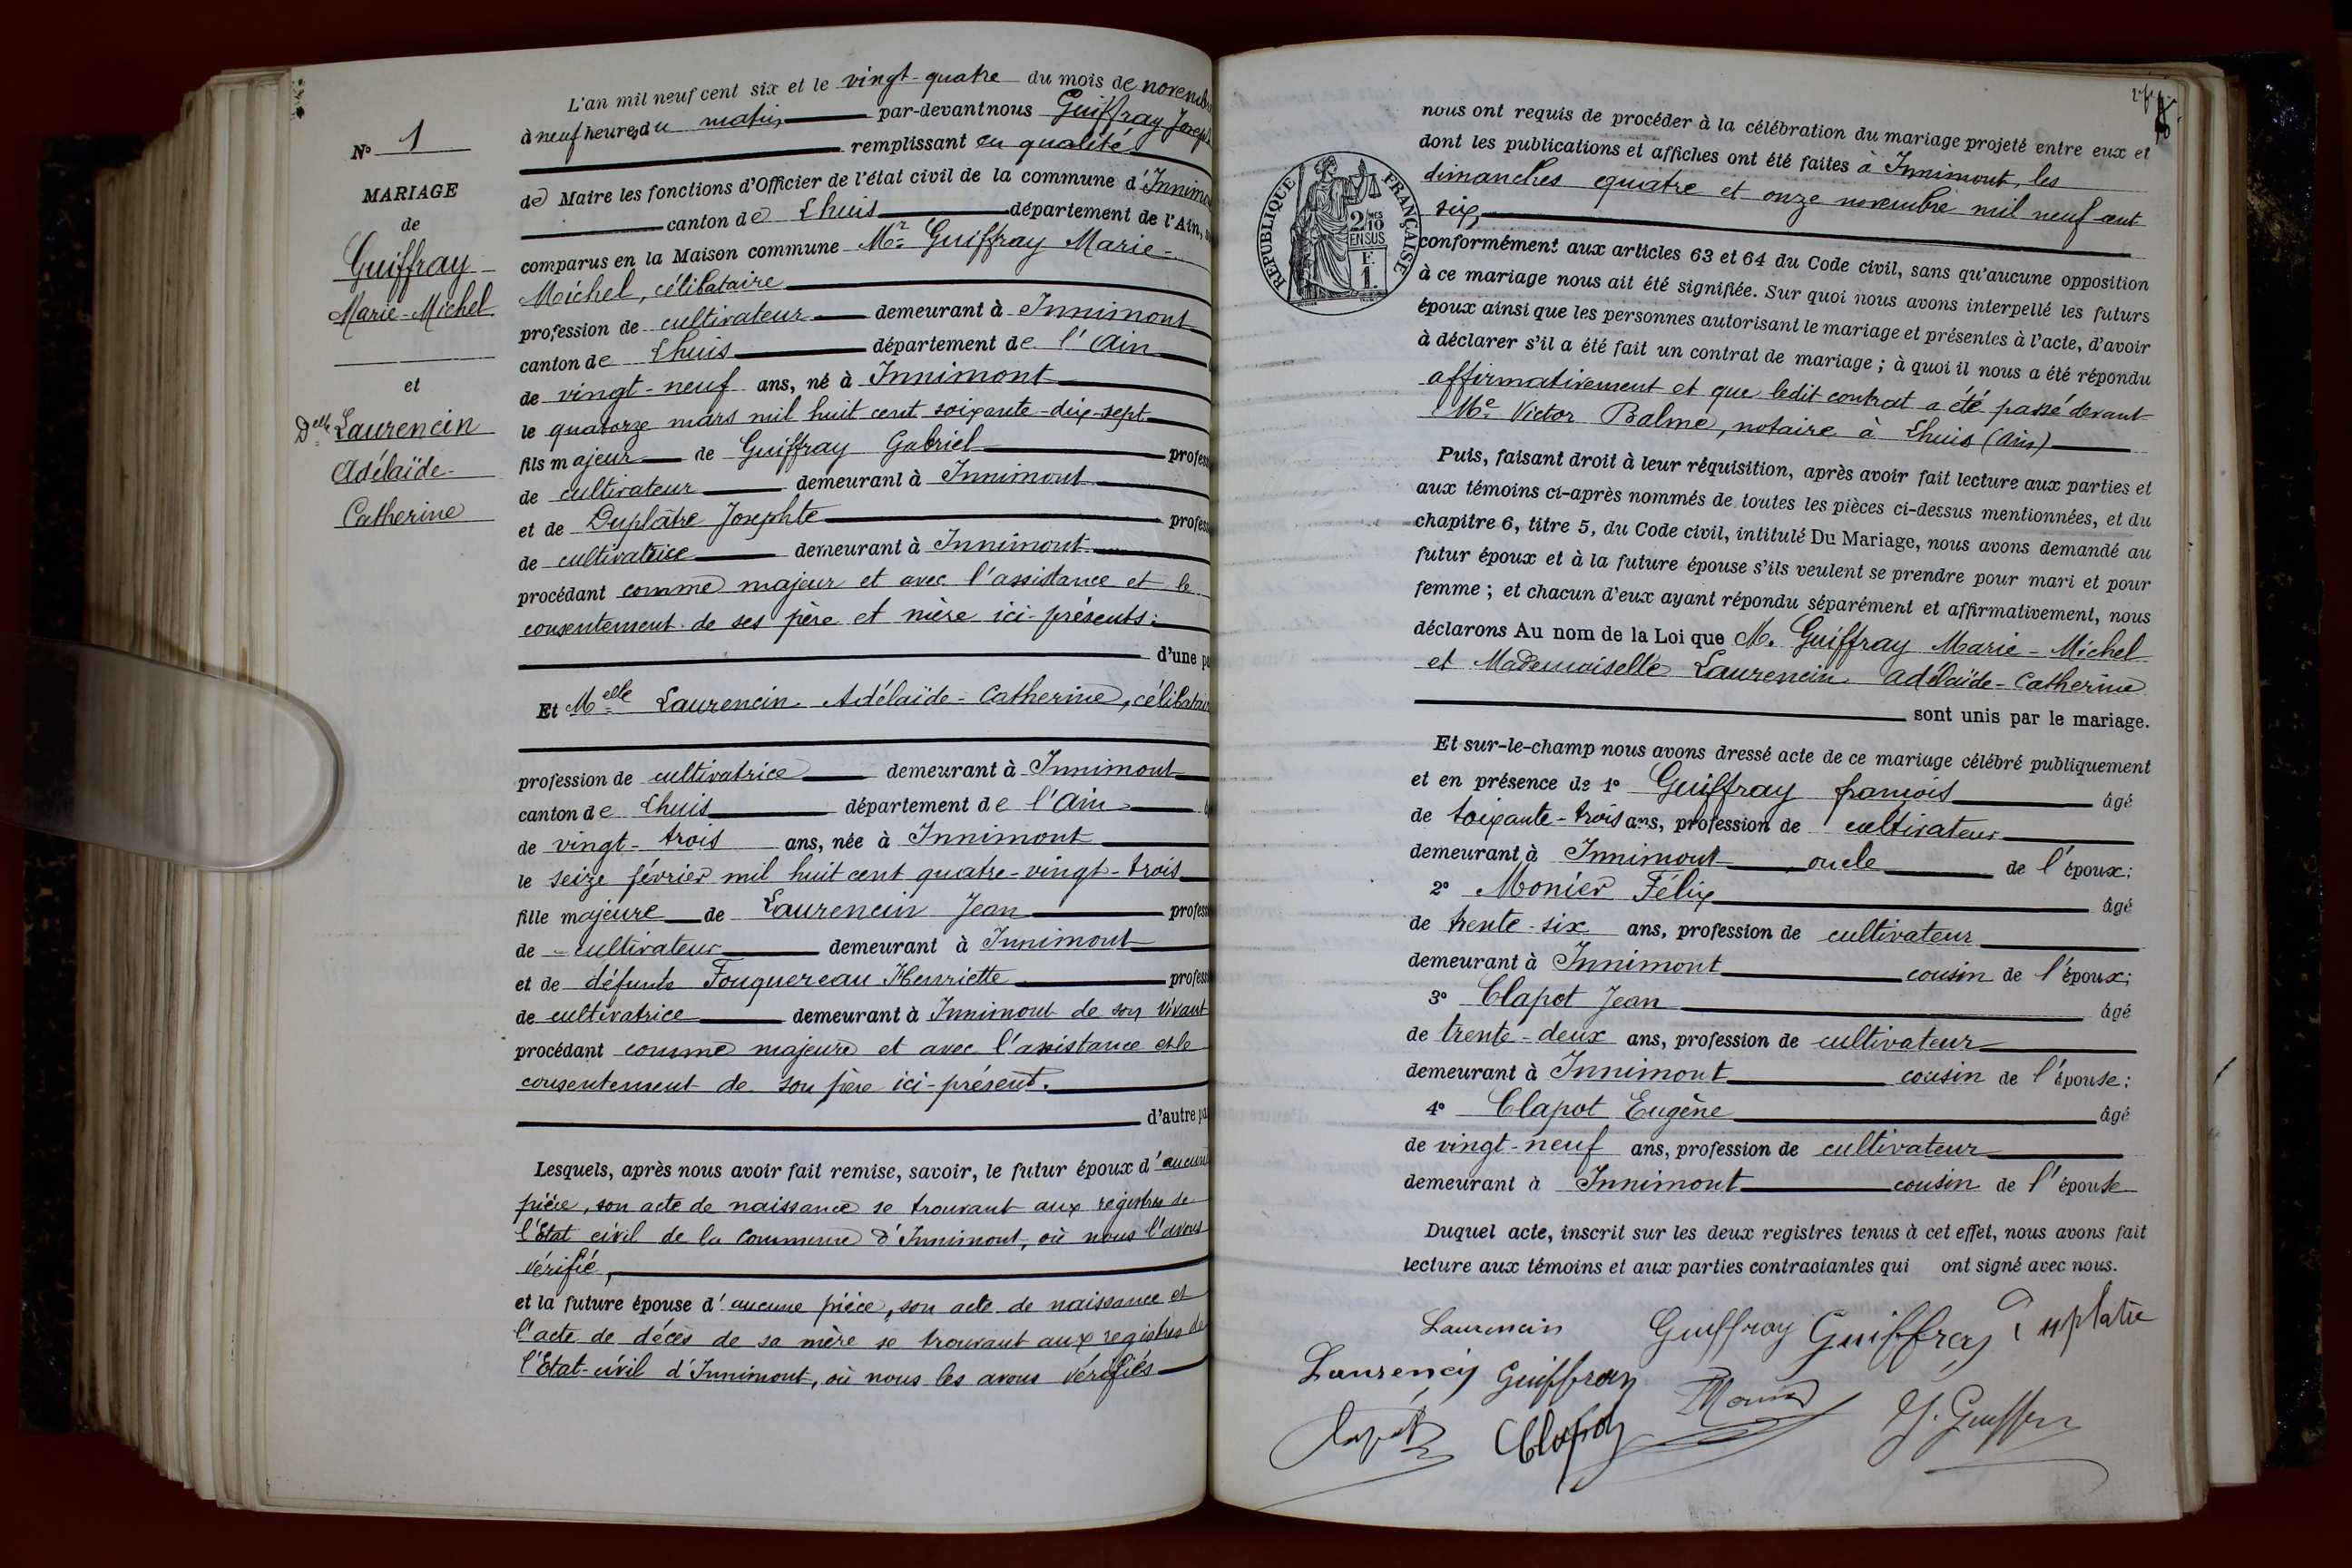 N° 1
MARIAGE
de
Guiffray
Marie-Michel
et
Delle Laurencin
Adélaïde-
Catherine
L'an mil neuf cent six et le vingt-quatre du mois de novembre
à neuf heures du matin par-devant nous Guiffray Joseph
remplissant en qualité
de Maire les fonctions d'Officier de l'état civil de la commune d'Innimont
canton de Lhuis département de l'Ain,
comparus en la Maison commune Mr Guiffray Marie-
Michel, célibataire
profession de cultivateur demeurant à Innimont
canton de Lhuis département de l'Ain
de vingt-neuf ans, né à Innimont
le quatorze mars mil huit cent soixante-dix-sept
fils majeur de Guiffray Gabriel profess
de cultivateur demeurant à Innimont
et de Duplâtre Josephte profess
de cultivatrice demeurant à Innimont
procédant comme majeur et avec l'assistance et le
consentement de ses père et mère ici-présents.
d'une pa
Et Melle Laurencin Adélaïde-Catherine, célibataire
profession de cultivatrice demeurant à Innimont
canton de Lhuis département de l'Ain
de vingt-trois ans, née à Innimont
le seize février mil huit cent quatre-vingt-trois
fille majeure de Laurencin Jean profess
de cultivateur demeurant à Innimont
et de défunte Fouquereau Henriette profess
de cultivatrice demeurant à Innimont de son vivant
procédant comme majeure et avec l'assistance et le
consentement de son père ici-présent.
d'autre pa
Lesquels, après nous avoir fait remise, savoir, le futur époux d'aucune
pièce, son acte de naissance se trouvant aux registres de
l'Etat civil de la Commune d'Innimont, où nous l'avons
vérifié,
et la future épouse d'aucune pièce, son acte de naissance et
l'acte de décès de sa mère se trouvant aux registres de
l'Etat-civil d'Innimont, où nous les avons vérifiés
RÉPUBLIQUE FRANÇAISE
2/10 MES
EN SUS
F.
1.
nous ont requis de procéder à la célébration du mariage projeté entre eux et
dont les publications et affiches ont été faites à Innimont, les
dimanches quatre et onze novembre mil neuf cent
six,
conformément aux articles 63 et 64 du Code civil, sans qu'aucune opposition
à ce mariage nous ait été signifiée. Sur quoi nous avons interpellé les futurs
époux ainsi que les personnes autorisant le mariage et présentes à l'acte, d'avoir
à déclarer s'il a été fait un contrat de mariage ; à quoi il nous a été répondu
affirmativement et que ledit contrat a été passé devant
Me Victor Balme, notaire à Lhuis (Ain)
Puis, faisant droit à leur réquisition, après avoir fait lecture aux parties et
aux témoins ci-après nommés de toutes les pièces ci-dessus mentionnées, et du
chapitre 6, titre 5, du Code civil, intitulé Du Mariage, nous avons demandé au
futur époux et à la future épouse s'ils veulent se prendre pour mari et pour
femme ; et chacun d'eux ayant répondu séparément et affirmativement, nous
déclarons Au nom de la Loi que M. Guiffray Marie-Michel
et Mademoiselle Laurencin Adélaïde-Catherine
sont unis par le mariage.
Et sur-le-champ nous avons dressé acte de ce mariage célébré publiquement
et en présence de 1° Guiffray françois âgé
de soixante-trois ans, profession de cultivateur
demeurant à Innimont oncle de l'époux;
2° Monier Félix âgé
de trente-six ans, profession de cultivateur
demeurant à Innimont cousin de l'époux;
3° Clapot Jean âgé
de trente-deux ans, profession de cultivateur
demeurant à Innimont cousin de l'épouse;
4° Clapot Eugène âgé
de vingt-neuf ans, profession de cultivateur
demeurant à Innimont cousin de l'épouse
Duquel acte, inscrit sur les deux registres tenus à cet effet, nous avons fait
lecture aux témoins et aux parties contractantes qui ont signé avec nous.
Laurencin Guiffray Guiffray Duplatre
Laurencin Guiffray Monier J. Guiffray
Clapot Clapot